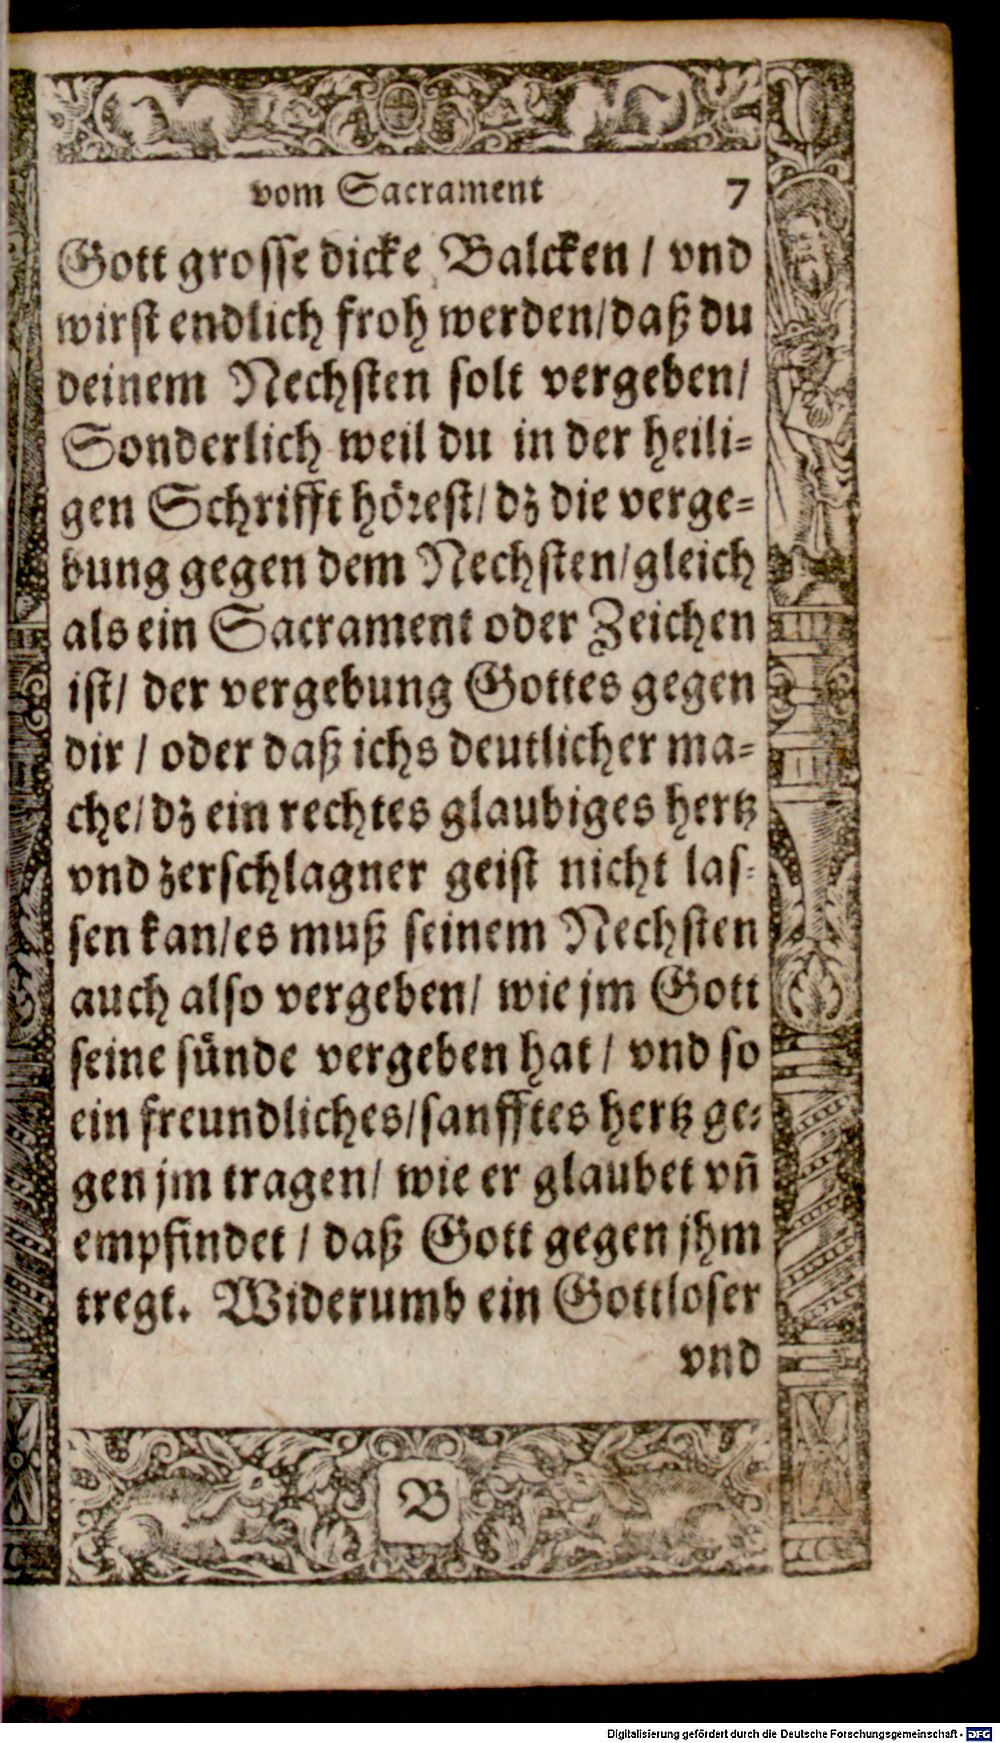 vom Sacrament 7
Gott grosse dicke Balcken / vnd
wirst endlich froh werden/daß du
deinem Nechsten solt vergeben/
Sonderlich weil du in der heili-
gen Schrifft hörest/ dz die verge-
bung gegen dem Nechsten/gleich
als ein Sacrament oder Zeichen
ist/ der vergebung Gottes gegen
dir / oder daß ichs deutlicher ma-
che/ dz ein rechtes glaubiges hertz
vnd zerschlagner geist nicht las-
sen kan/es muß seinem Nechsten
auch also vergeben/ wie jm Gott
seine sünde vergeben hat / vnd so
ein freundliches/sanfftes hertz ge-
gen jm tragen/ wie er glaubet vñ
empfindet / daß Gott gegen jhm
tregt. Widerumb ein Gottloser
vnd
B
Digitalisierung gefördert durch die Deutsche Forschungsgemeinschaft - DFG